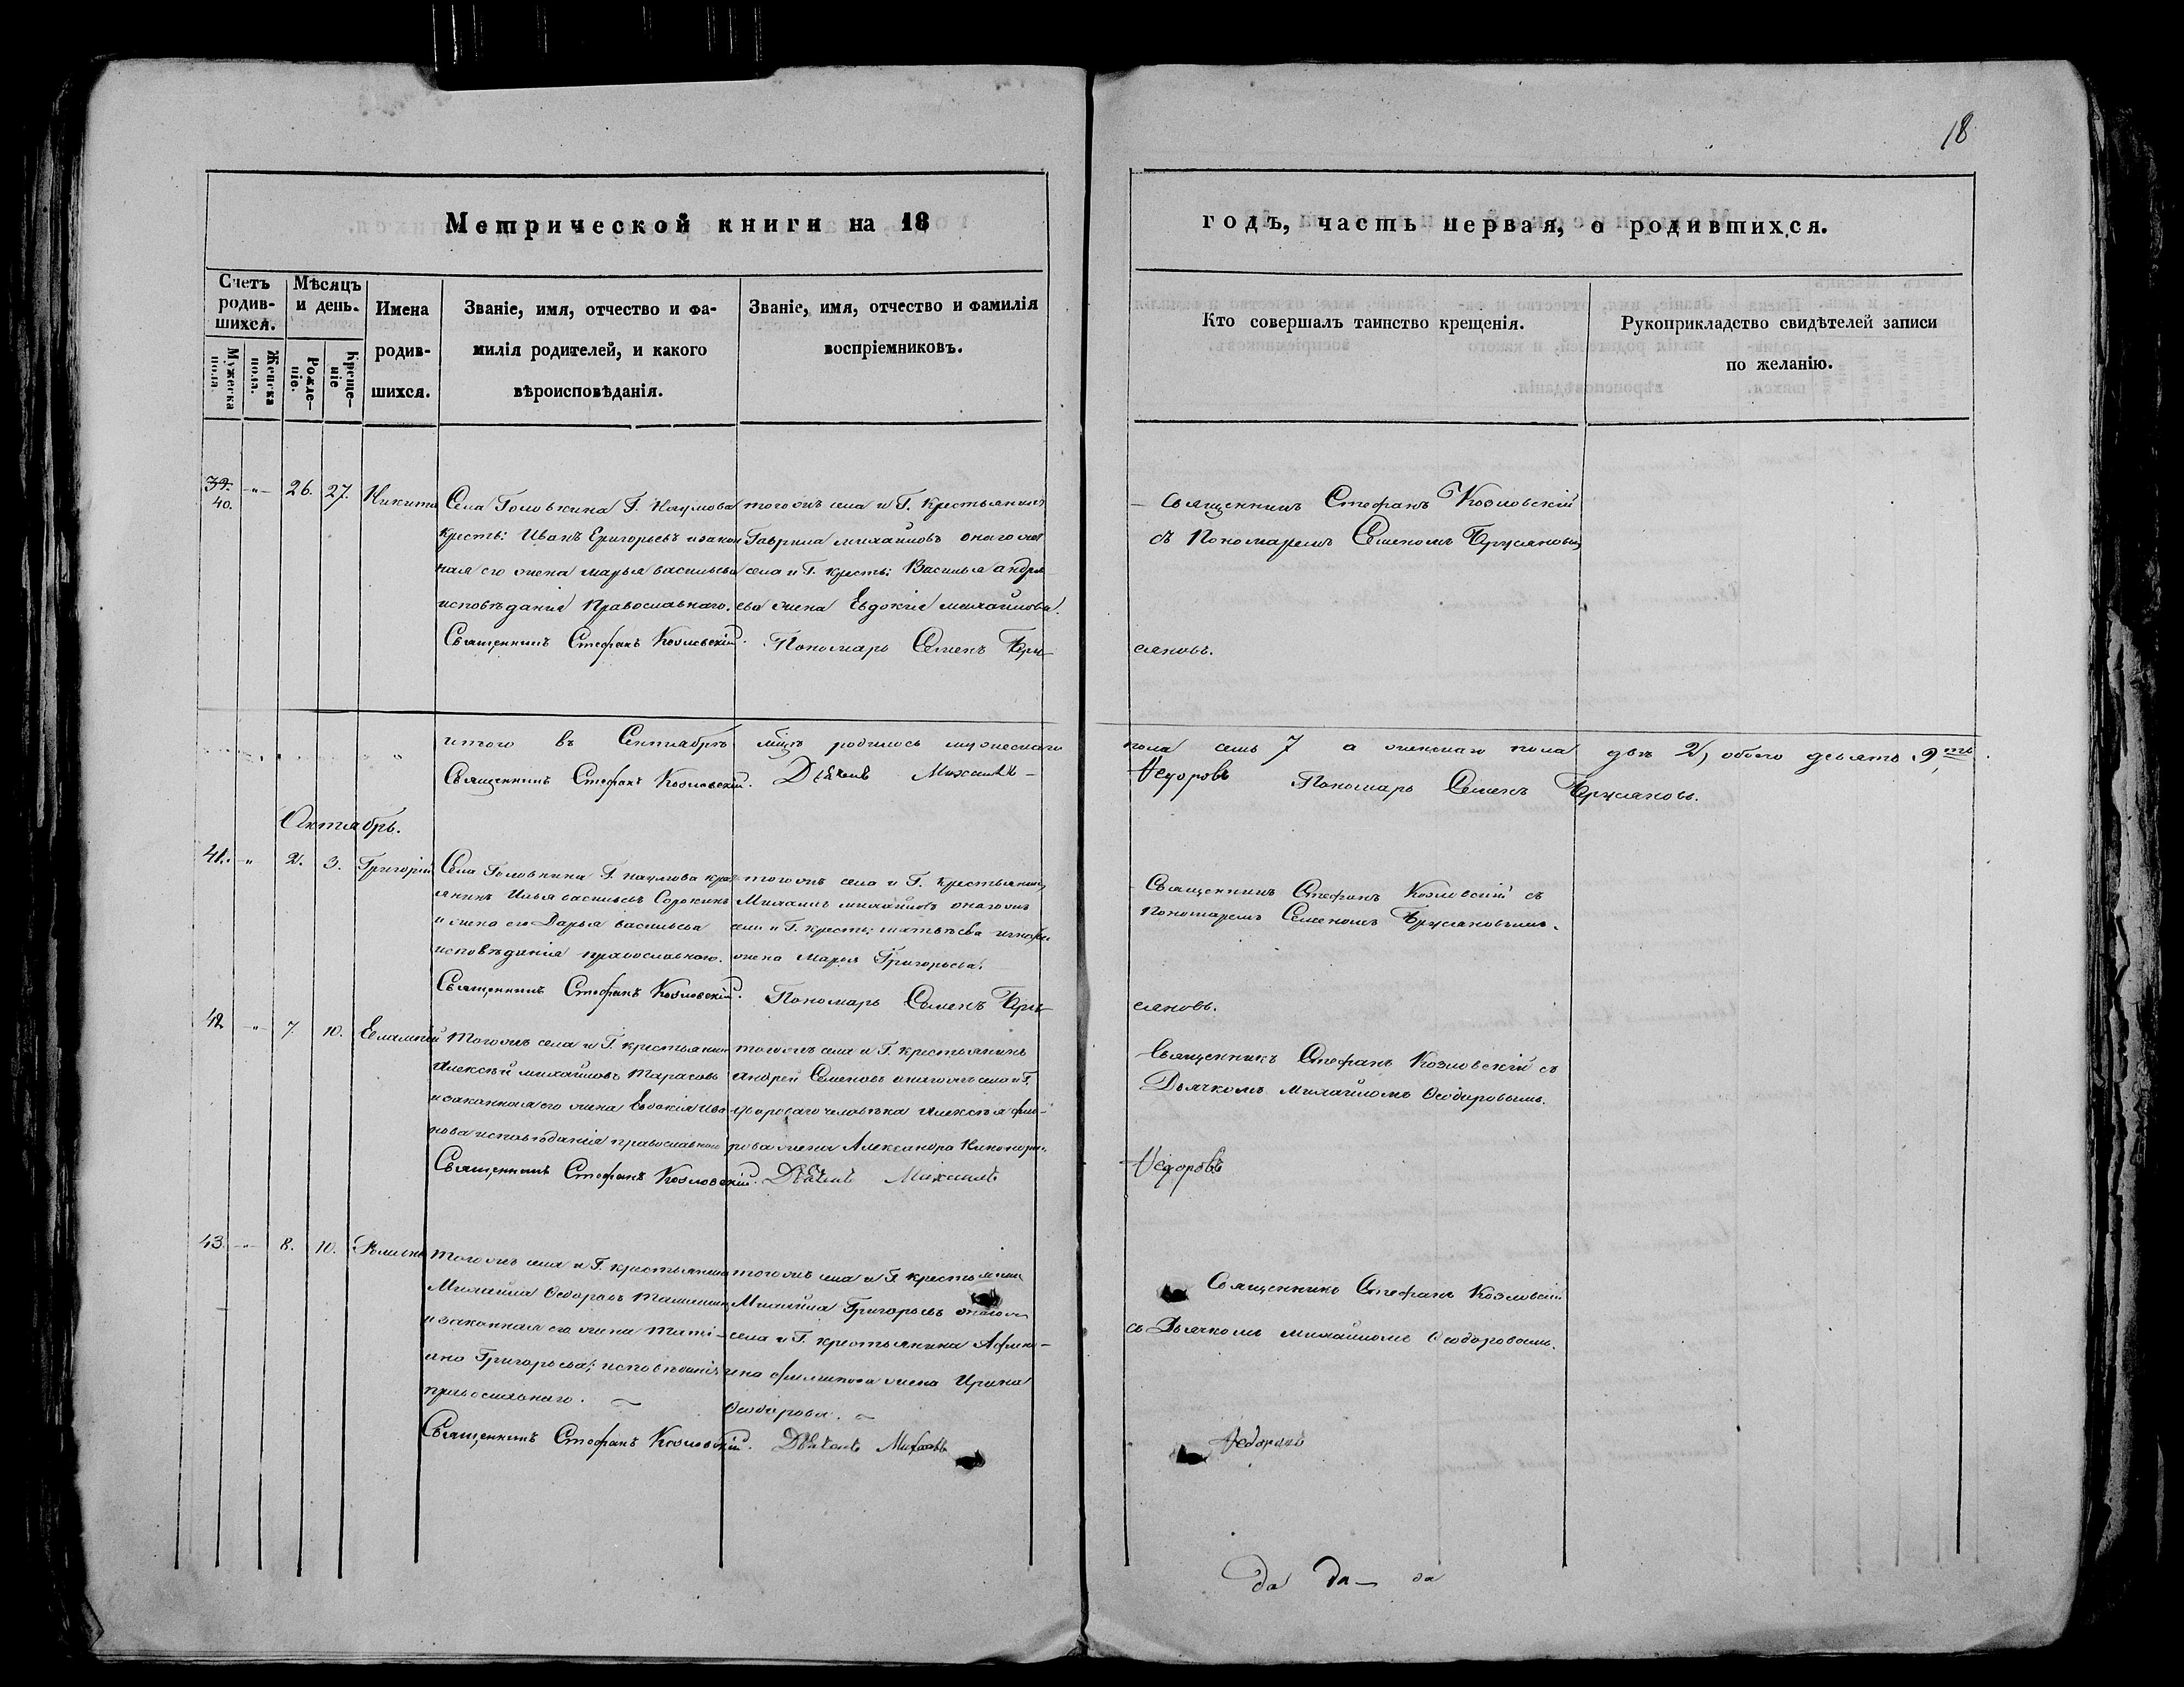 18
Метрической книги на 18
годъ, часть первая, о родившихся.
Счетъ родив-шихся.
Мѣсяцъ и день.
Имена родив-шихся.
Званіе, имя, отчество и фа-
милія родителей, и какого
вѣроисповѣданія.
Званіе, имя, отчество и фамилія
воспріемниковъ.
Кто совершалъ таинство крещенія.
Рукоприкладство свидѣтелей записи
по желанію.
Мужеска пола.
Женска пола.
Рожде-ніе.
Креще-ніе
39.
40. -"- 26. 27. Никита
Села Головкина Г. Наумова
крестьː Иванъ Григорьевъ и закон
ная его жена Марья Васильева
исповѣданія Православнаго.
тогожъ села и Г. Крестьянинъ
Гаврила Михайловъ онагожъ
села и Г. крестьː Василья Андре
ева жена Евдокія Михайлова.
Священникъ Стефанъ Козловскій
съ Пономаремъ Семеномъ
Священникъ Стефанъ Козловскій. Пономарь Семенъ
итого въ Сентябрѣ мцѣ родилось мужескаго пола семь 7 а женскаго пола двѣ 2, обоего девять 9ть.
Священникъ Стефанъ Козловскій. Дьячекъ Михаилъ Федоровъ Пономарь Семенъ
Октябрь.
41. " 2. 3. Григорій
Села Головкина Г. Наумова крес
янинъ Илья Васильевъ Сорокинъ
и жена его Дарья Васильева
исповѣданія православного.
тогожъ села и Г. Крестьянинъ
Михаилъ Михайловъ онагожъ
села и Г. крестьː
жена Марья Григорьева.
Священникъ Стефанъ Козловскій съ
Пономаремъ Семеномъ
Священникъ Стефанъ Козловскій. Пономарь Семенъ
42 -"- 7. 10. Евлампій
Тогожъ села и Г. крестьянин
Алексѣй Михайловъ Тарасовъ
и законная его жена Евдокія Ива
нова исповѣданія православного
тогожъ села и Г. крестьянинъ
Андрей Семеновъ онагожъ села и Г.
двороваго человѣка Алексѣя
жена Александра
Священникъ Стефанъ Козловскій съ
Дьячкомъ Михайломъ Ѳеодоровымъ.
Священникъ Стефанъ Козловскій. Дьячекъ Михаилъ Федоровъ
43. -"- 8. 10.
Тогожъ села и Г. крестьянина
Михайла Ѳедоровъ
и законная его жена Тати-
яна Григорьева; исповѣданія
православнаго.
тогожъ села и Г. крестьянин
Михайла Григорьевъ онагожъ
села и Г. крестьянина
жена Ирина
Ѳеодорова.
Священникъ Стефанъ Козловскій
съ Дьячкомъ Михайломъ Ѳеодоровымъ.
Священникъ Стефанъ Козловскій. Дьячекъ Михаилъ Федоровъ
да да да